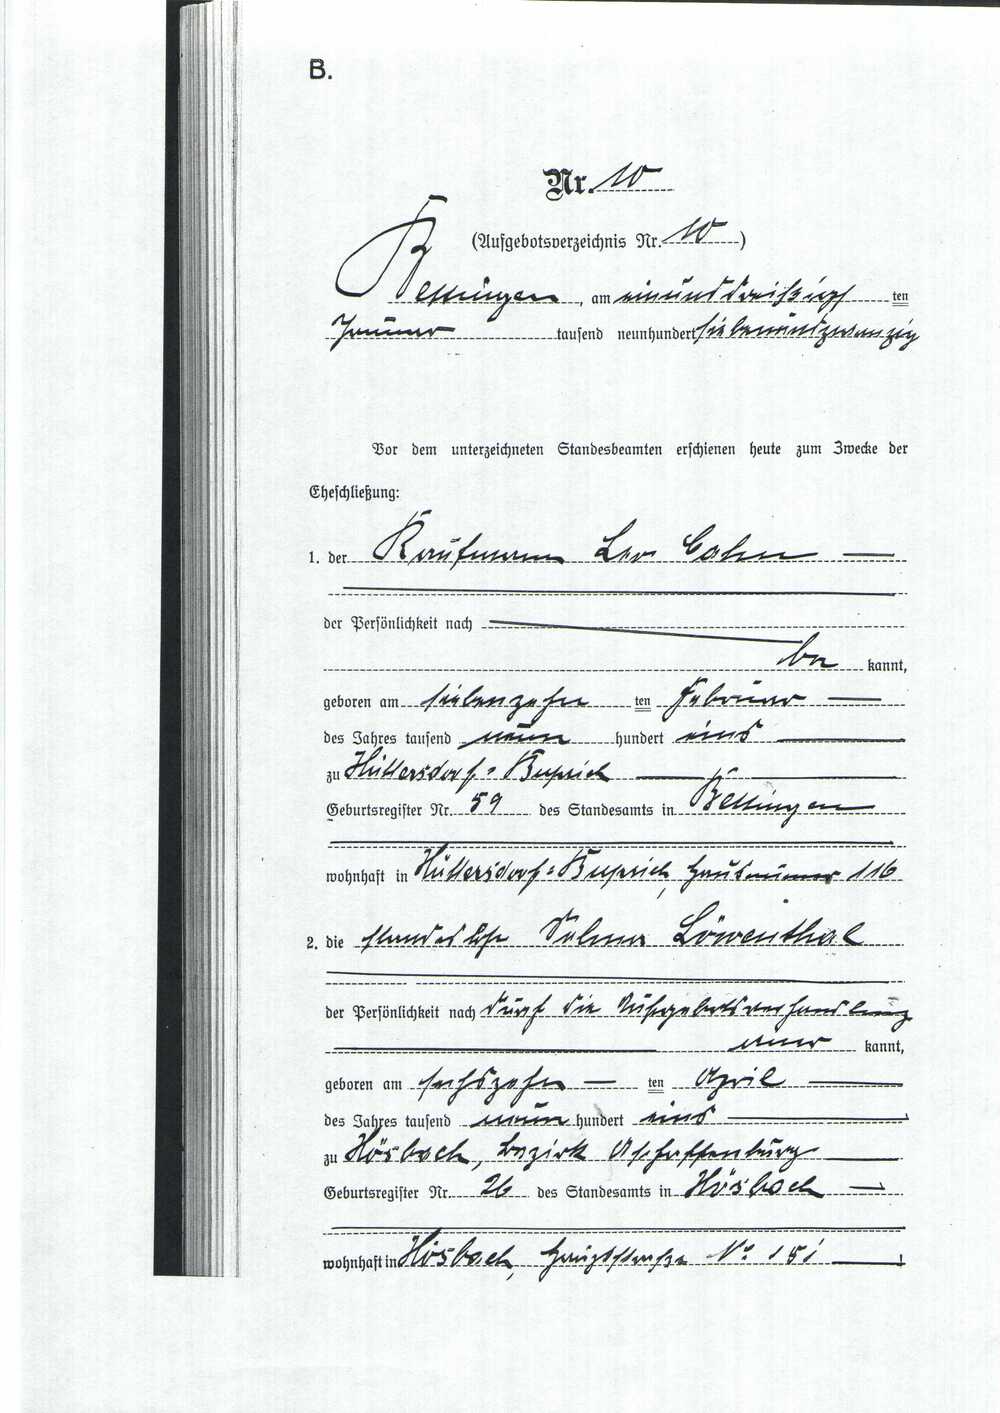 B.
Nr. 10
(Aufgebotsverzeichnis Nr. 10)
Bettingen, am einunddreißigsten
Januar tausend neunhundert siebenundzwanzig
Vor dem unterzeichneten Standesbeamten erschienen heute zum Zwecke der
Eheschließung:
1. der Kaufmann Leo Cahn
der Persönlichkeit nach
be kannt,
geboren am siebenzehn ten Februar
des Jahres tausend neun hundert eins
zu Hüttersdorf-Buprich
Geburtsregister Nr. 59 des Standesamts in Bettingen
wohnhaft in Hüttersdorf-Buprich, Hausnummer 116
2. die standeslose Selma Löwenthal
der Persönlichkeit nach durch die Aufgebotsverhandlung
aner kannt,
geboren am sechszehn ten April
des Jahres tausend neun hundert eins
zu Hösbach, Bezirk Aschaffenburg
Geburtsregister Nr. 26 des Standesamts in Hösbach
wohnhaft in Hösbach, Hauptstraße No 151